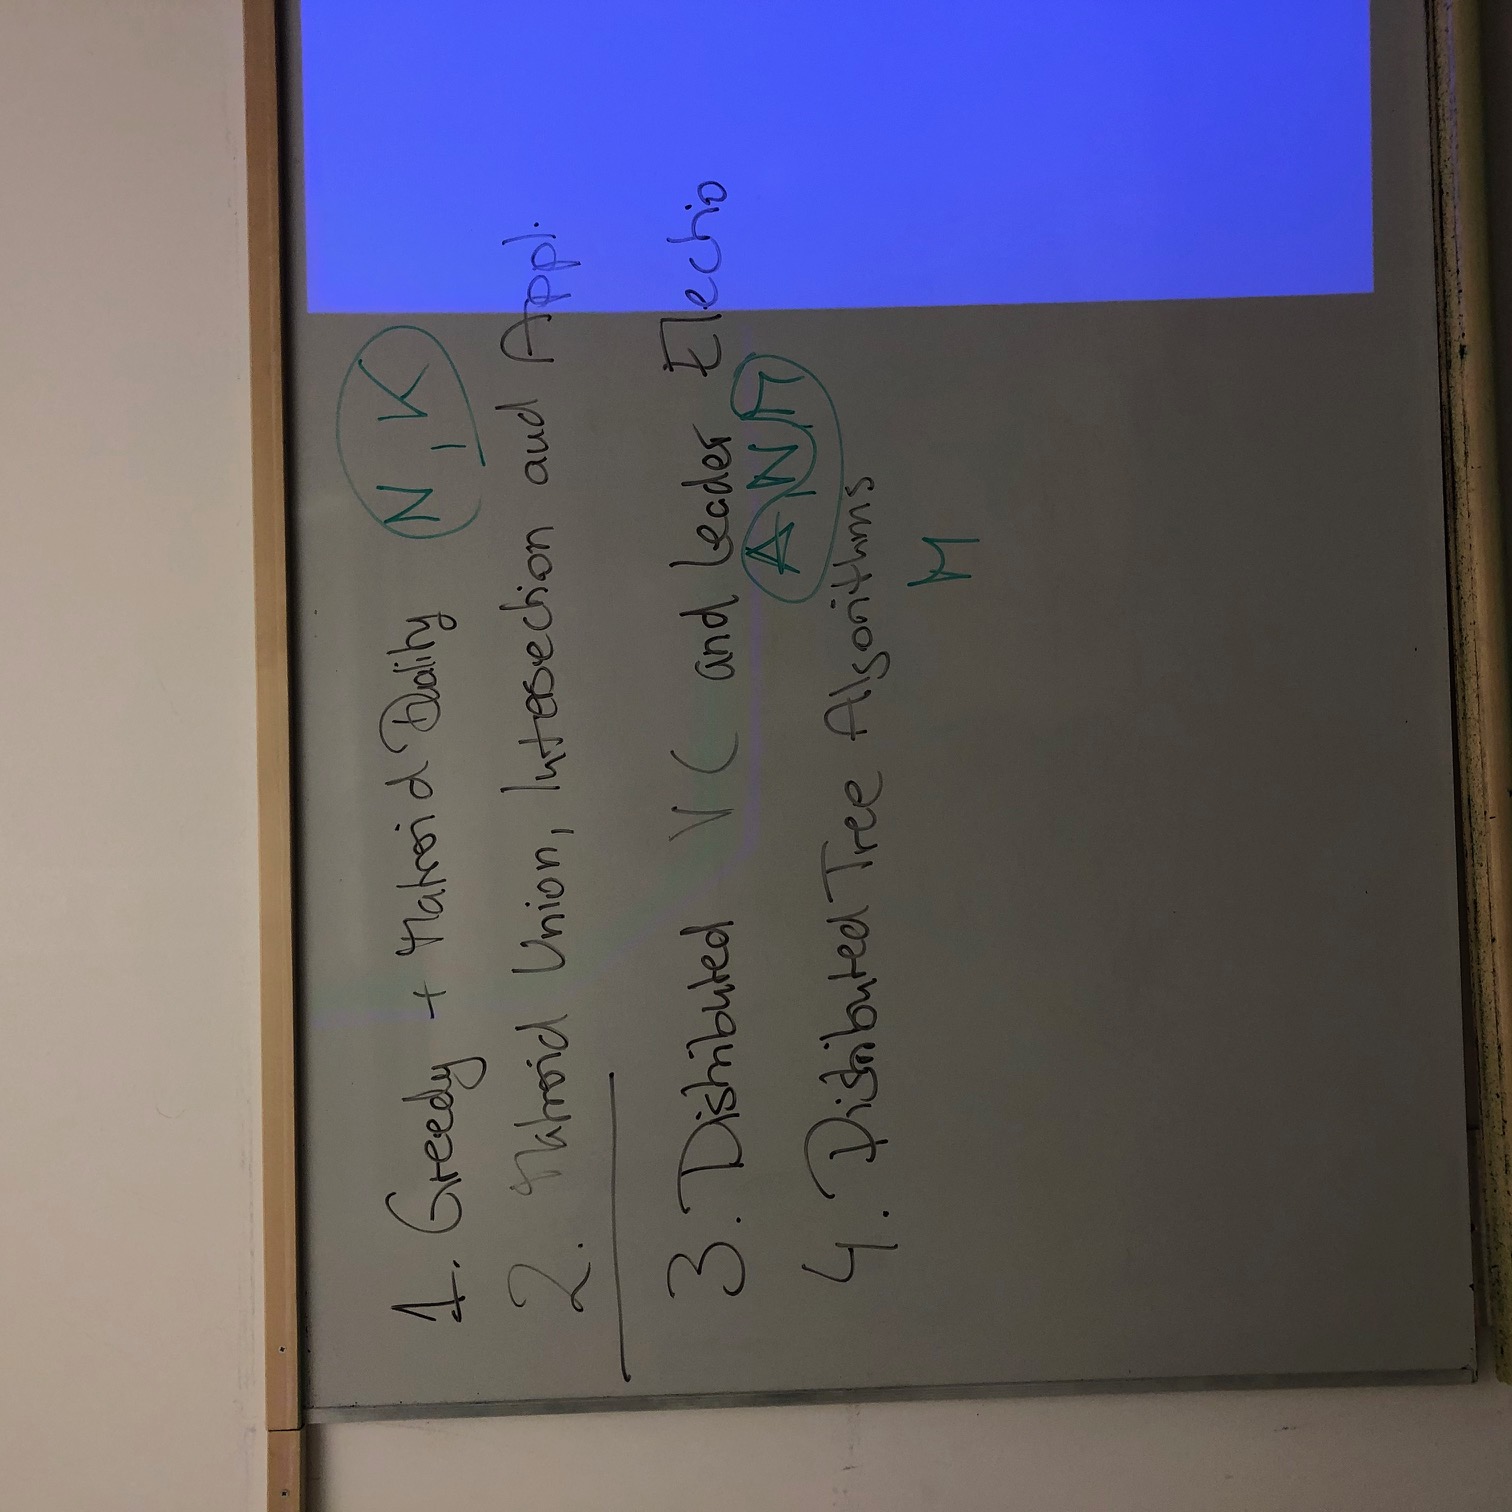 1. Greedy + Matroid Duality N, K
2. Matroid Union, Intersection and Appl.
3. Distributed VC and Leader Electio
A, N, M
4. Distributed Tree Algorithms
M